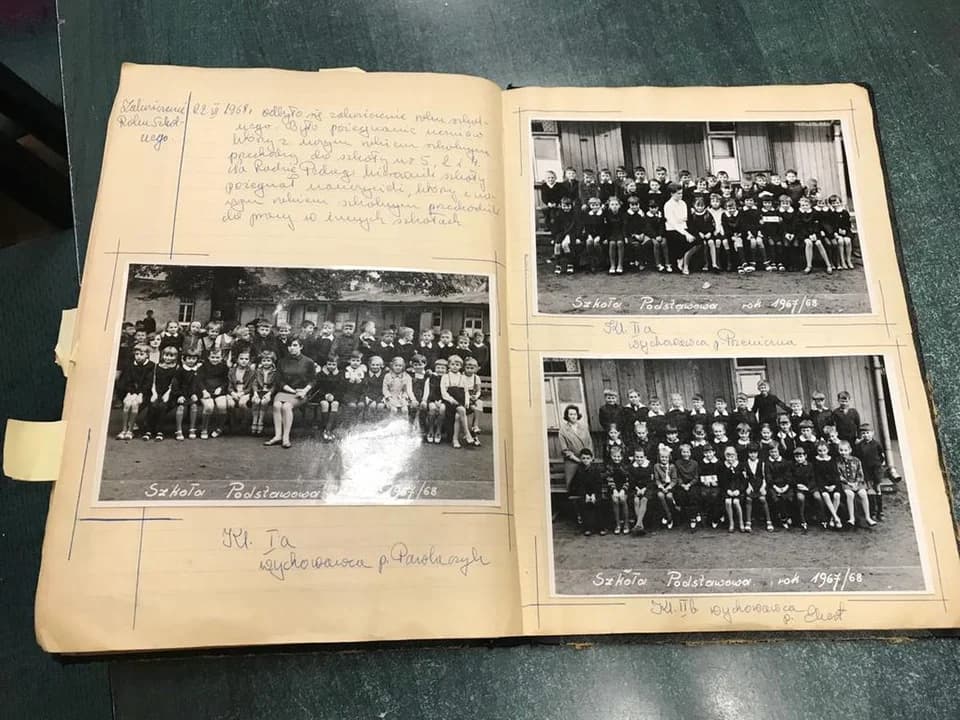 Zakończenie
Roku Szkol-
nego
22 VI 1968r. odbyło się zakończenie roku szkol-
nego. Było pożegnanie uczniów
którzy z nowym rokiem szkolnym
przechodzą do szkoły nr 5, 2 i 4.
Na Radzie Pedag. kierownik szkoły
pożegnał nauczycieli, którzy z no-
wym rokiem szkolnym przechodzą
do pracy w innych szkołach
Szkoła Podstawowa 1967/68
Kl. Ia
wychowawca p.
Szkoła Podstawowa rok 1967/68
Kl. IIa
wychowawca p.
Szkoła Podstawowa rok 1967/68
Kl. IIb wychowawca
p.